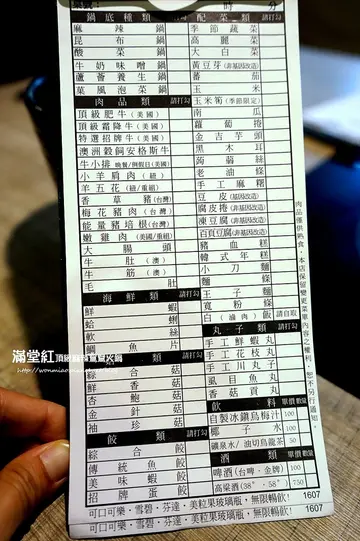 時 分
鍋底種類 請打勾
麻辣鍋
昆布鍋
酸菜鍋
牛奶味噌鍋
蘆薈養生鍋
菌風泡菜鍋
肉品類 請打勾
頂級肥牛(美國)
頂級霜降牛(美國)
特選招牌牛(美國)
澳洲穀飼安格斯牛
牛小排 晚餐/例假日(美國)
小羊肩肉(紐)
羊五花(紐/重組)
香草豬(台灣)
梅花豬肉(台灣)
能量豬培根(台灣)
嫩雞肉(美國/重組)
大腸頭
牛肚(澳)
牛筋(澳)
毛肚
海鮮類 請打勾
鮮蝦
蛤蜊
軟絲
鯛魚片
請打勾
綜合菇
鮮香菇
杏鮑菇
金針菇
袖珍菇
餃類 請打勾
綜合餃
傳統魚餃
美味蝦餃
招牌蛋餃
配菜類 請打勾
季節蔬菜
高麗菜
大白菜
黃豆芽(非基因改造)
番茄
玉米
玉米筍(季節限定)
南瓜
蘿蔔捲
金吉芋頭
黑木耳
蒟蒻絲
老油條
手工麻糬
豆皮(基因改造)
腐皮捲(非基因改造)
凍豆腐(非基因改造)
百頁豆腐(非基因改造)
豬血糕
韓式年糕
小刀麵
麵
王子麵
寬粉條
白(滷肉)飯 請自取
丸子類 請打勾
手工鮮蝦丸
手工花枝丸
手工川丸子
虱目魚丸
香菇貢丸
飲料 單價 數量
自製冰鎮烏梅汁 100
椰子水 100
礦泉水/油切烏龍茶 50
酒類 單價 數量
啤酒(台啤.金牌) 100
高粱酒(38°.58°) 750
可口可樂、雪碧、芬達、美粒果玻璃瓶，無限暢飲! 1607
可口可樂、雪碧、芬達、美粒果玻璃瓶，無限暢飲! 1607
肉品僅供熟食，本店保留變更菜單內容之權利，恕不另行通知
滿堂紅頂級麻辣鴛鴦火鍋